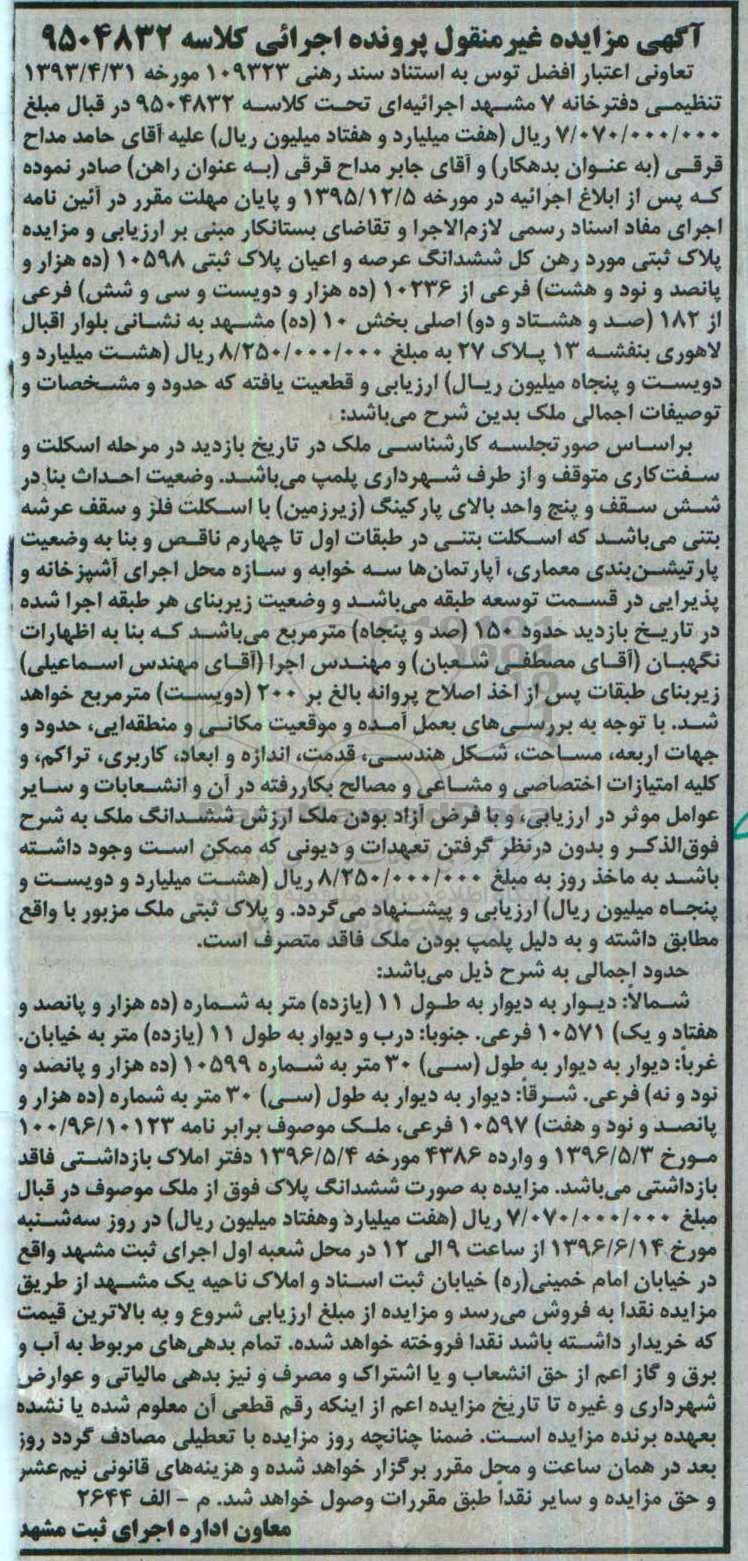 آگهی مزایده غیرمنقول پرونده اجرائی کلاسه ۹۵۰۴۸۳۲
تعاونی اعتبار افضل توس به استناد سند رهنی ۱۰۹۳۲۳ مورخه ۱۳۹۳/۴/۳۱
تنظیمی دفترخانه ۷ مشهد اجرائیه‌ای تحت کلاسه ۹۵۰۴۸۳۲ در قبال مبلغ
۷/۰۷۰/۰۰۰/۰۰۰ ریال (هفت میلیارد و هفتاد میلیون ریال) علیه آقای حامد مداح
قرقی (به عنوان بدهکار) و آقای جابر مداح قرقی (به عنوان راهن) صادر نموده
که پس از ابلاغ اجرائیه در مورخه ۱۳۹۵/۱۲/۵ و پایان مهلت مقرر در آئین نامه
اجرای مفاد اسناد رسمی لازم‌الاجرا و تقاضای بستانکار مبنی بر ارزیابی و مزایده
پلاک ثبتی مورد رهن کل ششدانگ عرصه و اعیان پلاک ثبتی ۱۰۵۹۸ (ده هزار و
پانصد و نود و هشت) فرعی از ۱۰۲۳۶ (ده هزار و دویست و سی و شش) فرعی
از ۱۸۲ (صد و هشتاد و دو) اصلی بخش ۱۰ (ده) مشهد به نشانی بلوار اقبال
لاهوری بنفشه ۱۳ پلاک ۲۷ به مبلغ ۸/۲۵۰/۰۰۰/۰۰۰ ریال (هشت میلیارد و
دویست و پنجاه میلیون ریال) ارزیابی و قطعیت یافته که حدود و مشخصات و
توصیفات اجمالی ملک بدین شرح می‌باشد:
براساس صورتجلسه کارشناسی ملک در تاریخ بازدید در مرحله اسکلت و
سفت‌کاری متوقف و از طرف شهرداری پلمپ می‌باشد. وضعیت احداث بنا در
شش سقف و پنج واحد بالای پارکینگ (زیرزمین) با اسکلت فلز و سقف عرشه
بتنی می‌باشد که اسکلت بتنی در طبقات اول تا چهارم ناقص و بنا به وضعیت
پارتیشن‌بندی معماری، آپارتمان‌ها سه خوابه و سازه محل اجرای آشپزخانه و
پذیرایی در قسمت توسعه طبقه می‌باشد و وضعیت زیربنای هر طبقه اجرا شده
در تاریخ بازدید حدود ۱۵۰ (صد و پنجاه) مترمربع می‌باشد که بنا به اظهارات
نگهبان (آقای مصطفی شعبان) و مهندس اجرا (آقای مهندس اسماعیلی)
زیربنای طبقات پس از اخذ اصلاح پروانه بالغ بر ۲۰۰ (دویست) مترمربع خواهد
شد. با توجه به بررسی‌های بعمل آمده و موقعیت مکانی و منطقه‌ایی، حدود و
جهات اربعه، مساحت، شکل هندسی، قدمت، اندازه و ابعاد، کاربری، تراکم، و
کلیه امتیازات اختصاصی و مشاعی و مصالح بکاررفته در آن و انشعابات و سایر
عوامل موثر در ارزیابی، و با فرض آزاد بودن ملک ارزش ششدانگ ملک به شرح
فوق‌الذکر و بدون درنظر گرفتن تعهدات و دیونی که ممکن است وجود داشته
باشد به ماخذ روز به مبلغ ۸/۲۵۰/۰۰۰/۰۰۰ ریال (هشت میلیارد و دویست و
پنجاه میلیون ریال) ارزیابی و پیشنهاد می‌گردد. و پلاک ثبتی ملک مزبور با واقع
مطابق داشته و به دلیل پلمپ بودن ملک فاقد متصرف است.
حدود اجمالی به شرح ذیل می‌باشد:
شمالاً: دیوار به دیوار به طول ۱۱ (یازده) متر به شماره (ده هزار و پانصد و
هفتاد و یک) ۱۰۵۷۱ فرعی. جنوباً: درب و دیوار به طول ۱۱ (یازده) متر به خیابان.
غرباً: دیوار به دیوار به طول (سی) ۳۰ متر به شماره ۱۰۵۹۹ (ده هزار و پانصد و
نود و نه) فرعی. شرقاً: دیوار به دیوار به طول (سی) ۳۰ متر به شماره (ده هزار و
پانصد و نود و هفت) ۱۰۵۹۷ فرعی، ملک موصوف برابر نامه ۱۰۰/۹۶/۱۰۱۲۳
مورخ ۱۳۹۶/۵/۳ و وارده ۴۳۸۶ مورخه ۱۳۹۶/۵/۴ دفتر املاک بازداشتی فاقد
بازداشتی می‌باشد. مزایده به صورت ششدانگ پلاک فوق از ملک موصوف در قبال
مبلغ ۷/۰۷۰/۰۰۰/۰۰۰ ریال (هفت میلیارد وهفتاد میلیون ریال) در روز سه‌شنبه
مورخ ۱۳۹۶/۶/۱۴ از ساعت ۹ الی ۱۲ در محل شعبه اول اجرای ثبت مشهد واقع
در خیابان امام خمینی(ره) خیابان ثبت اسناد و املاک ناحیه یک مشهد از طریق
مزایده نقدا به فروش می‌رسد و مزایده از مبلغ ارزیابی شروع و به بالاترین قیمت
که خریدار داشته باشد نقدا فروخته خواهد شده. تمام بدهی‌های مربوط به آب و
برق و گاز اعم از حق انشعاب و یا اشتراک و مصرف و نیز بدهی مالیاتی و عوارض
شهرداری و غیره تا تاریخ مزایده اعم از اینکه رقم قطعی آن معلوم شده یا نشده
بعهده برنده مزایده است. ضمنا چنانچه روز مزایده با تعطیلی مصادف گردد روز
بعد در همان ساعت و محل مقرر برگزار خواهد شده و هزینه‌های قانونی نیم‌عشر
و حق مزایده و سایر نقداً طبق مقررات وصول خواهد شد. م - الف ۲۶۴۴
معاون اداره اجرای ثبت مشهد